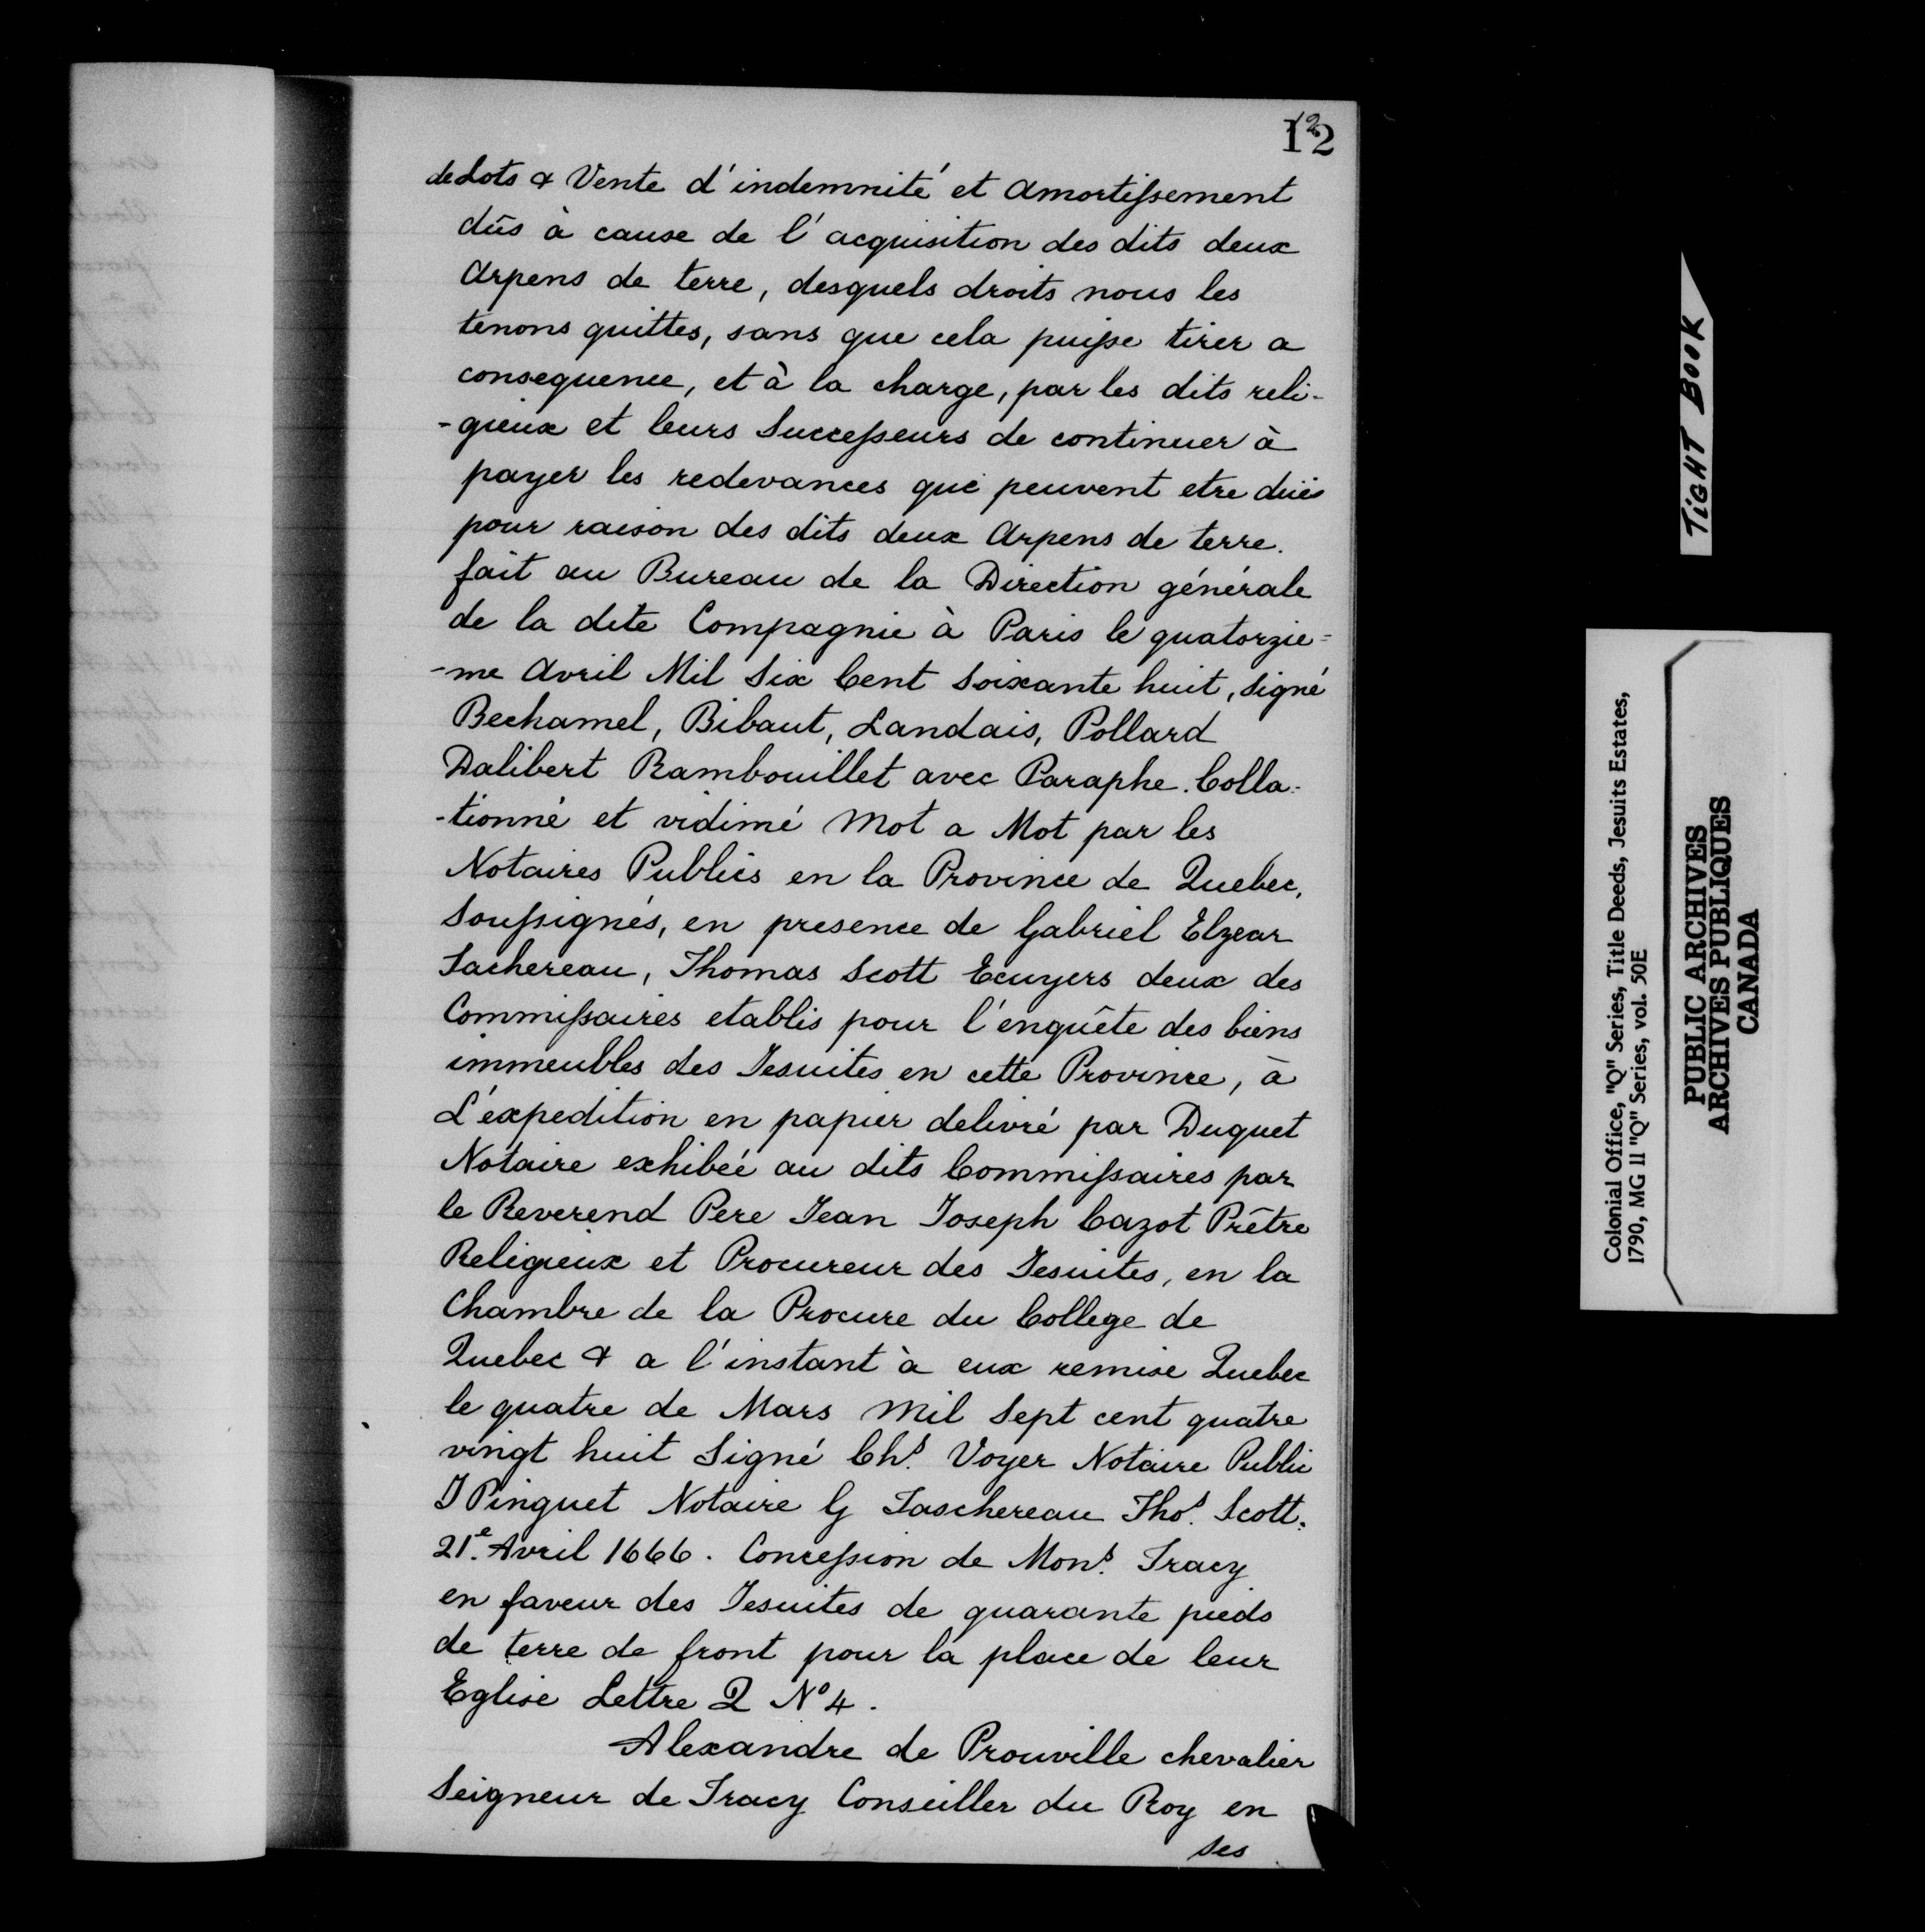 12
12
de Lots & Vente d'indemnité et amortissement
dûs à cause de l'acquisition des dits deux
Arpens de terre, desquels droits nous les
tenons quittes, sans que cela puisse tirer a
consequence, et à la charge, par les dits reli-
-gieux et leurs Successeurs de continuer à
payer les redevances que peuvent etre duës
pour raison des dits deux Arpens de terre.
fait au Bureau de la Direction générale
de la dite Compagnie à Paris le quatorzie=
-me Avril Mil Six Cent Soixante huit, Signé
Bechamel, Bibaut, Landais, Pollard
Dalibert Rambouillet avec Paraphe. Colla-
-tionné et vidimé Mot a Mot par les
Notaires Publics en la Province de Quebec,
Soussignés, en presence de Gabriel Elzear
Tachereau, Thomas Scott Ecuyers deux des
Commissaires etablis pour l'enquête des biens
immeubles des Jesuites en cette Province, à
L'expedition en papier delivré par Duguet
Notaire exhibeé au dits Commissaires par
le Reverend Pere Jean Joseph Cazot Prêtre
Religieux et Procureur des Jesuites, en la
Chambre de la Procure du College de
Quebec & a l'instant à eux remise Quebec
le quatre de Mars Mil Sept cent quatre
vingt huit Signé Chs. Voyer Notaire Public
J Pinguet Notaire G Taschereau Thos. Scott.
21e. Avril 1666. Concession de Mons. Tracy
en faveur des Jesuites de quarante pieds
de terre de front pour la place de leur
Eglise Lettre Q No 4.
Alexandre de Prouville chevalier
Seigneur de Tracy Conseiller du Roy en
ses
TIGHT BOOK
Colonial Office, "Q" Series, Title Deeds, Jesuits Estates,
1790, MG 11 "Q" Series, vol. 50E
PUBLIC ARCHIVES
ARCHIVES PUBLIQUES
CANADA